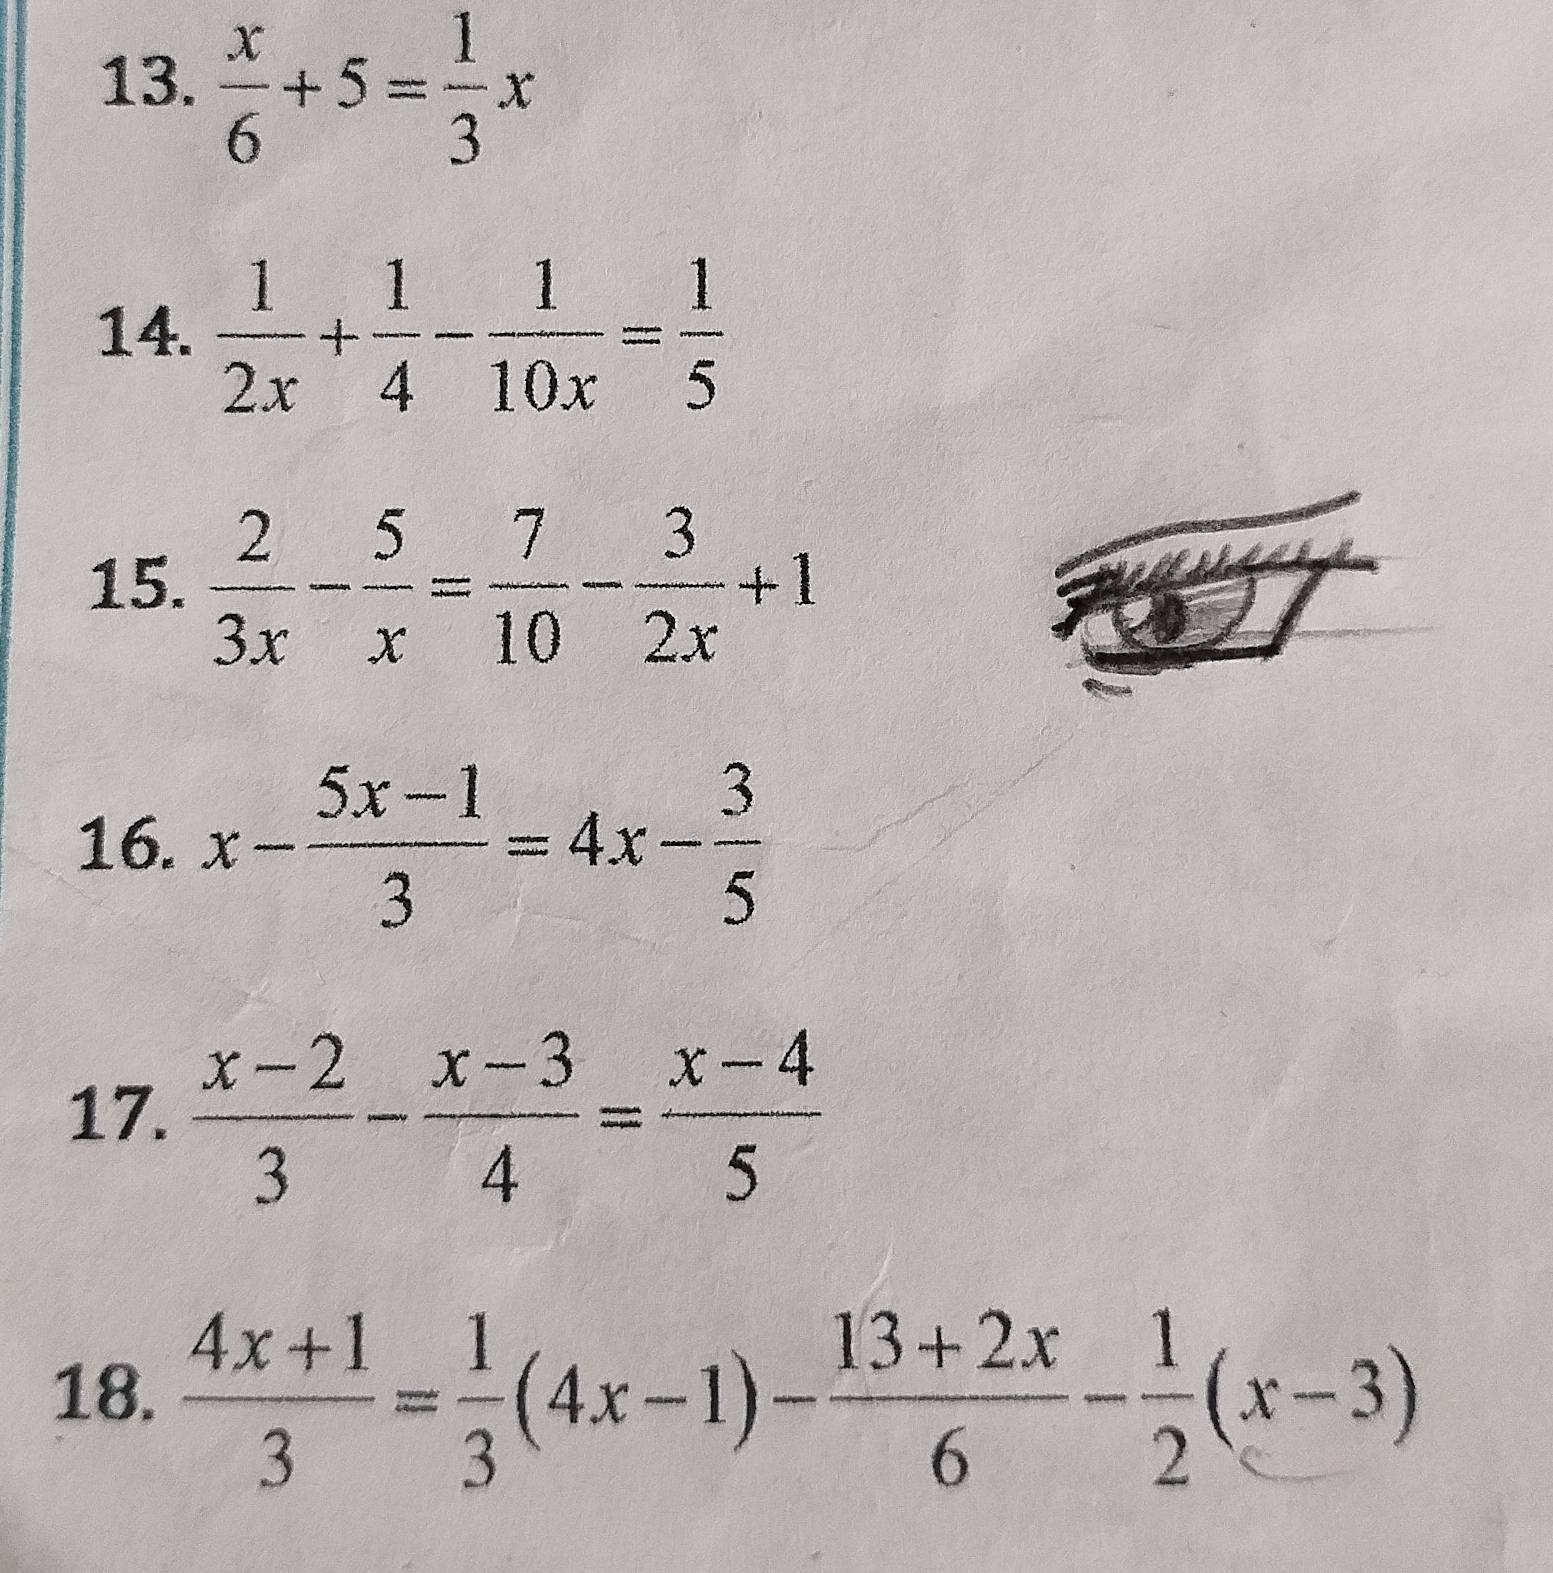 13. x/6 + 5 = 1/3 x
14. 1/2x + 1/4 − 1/10x = 1/5
15. 2/3x − 5/x = 7/10 − 3/2x + 1
16. x − (5x−1)/3 = 4x − 3/5
17. (x−2)/3 − (x−3)/4 = (x−4)/5
18. (4x+1)/3 = 1/3 (4x−1) − (13+2x)/6 − 1/2 (x−3)